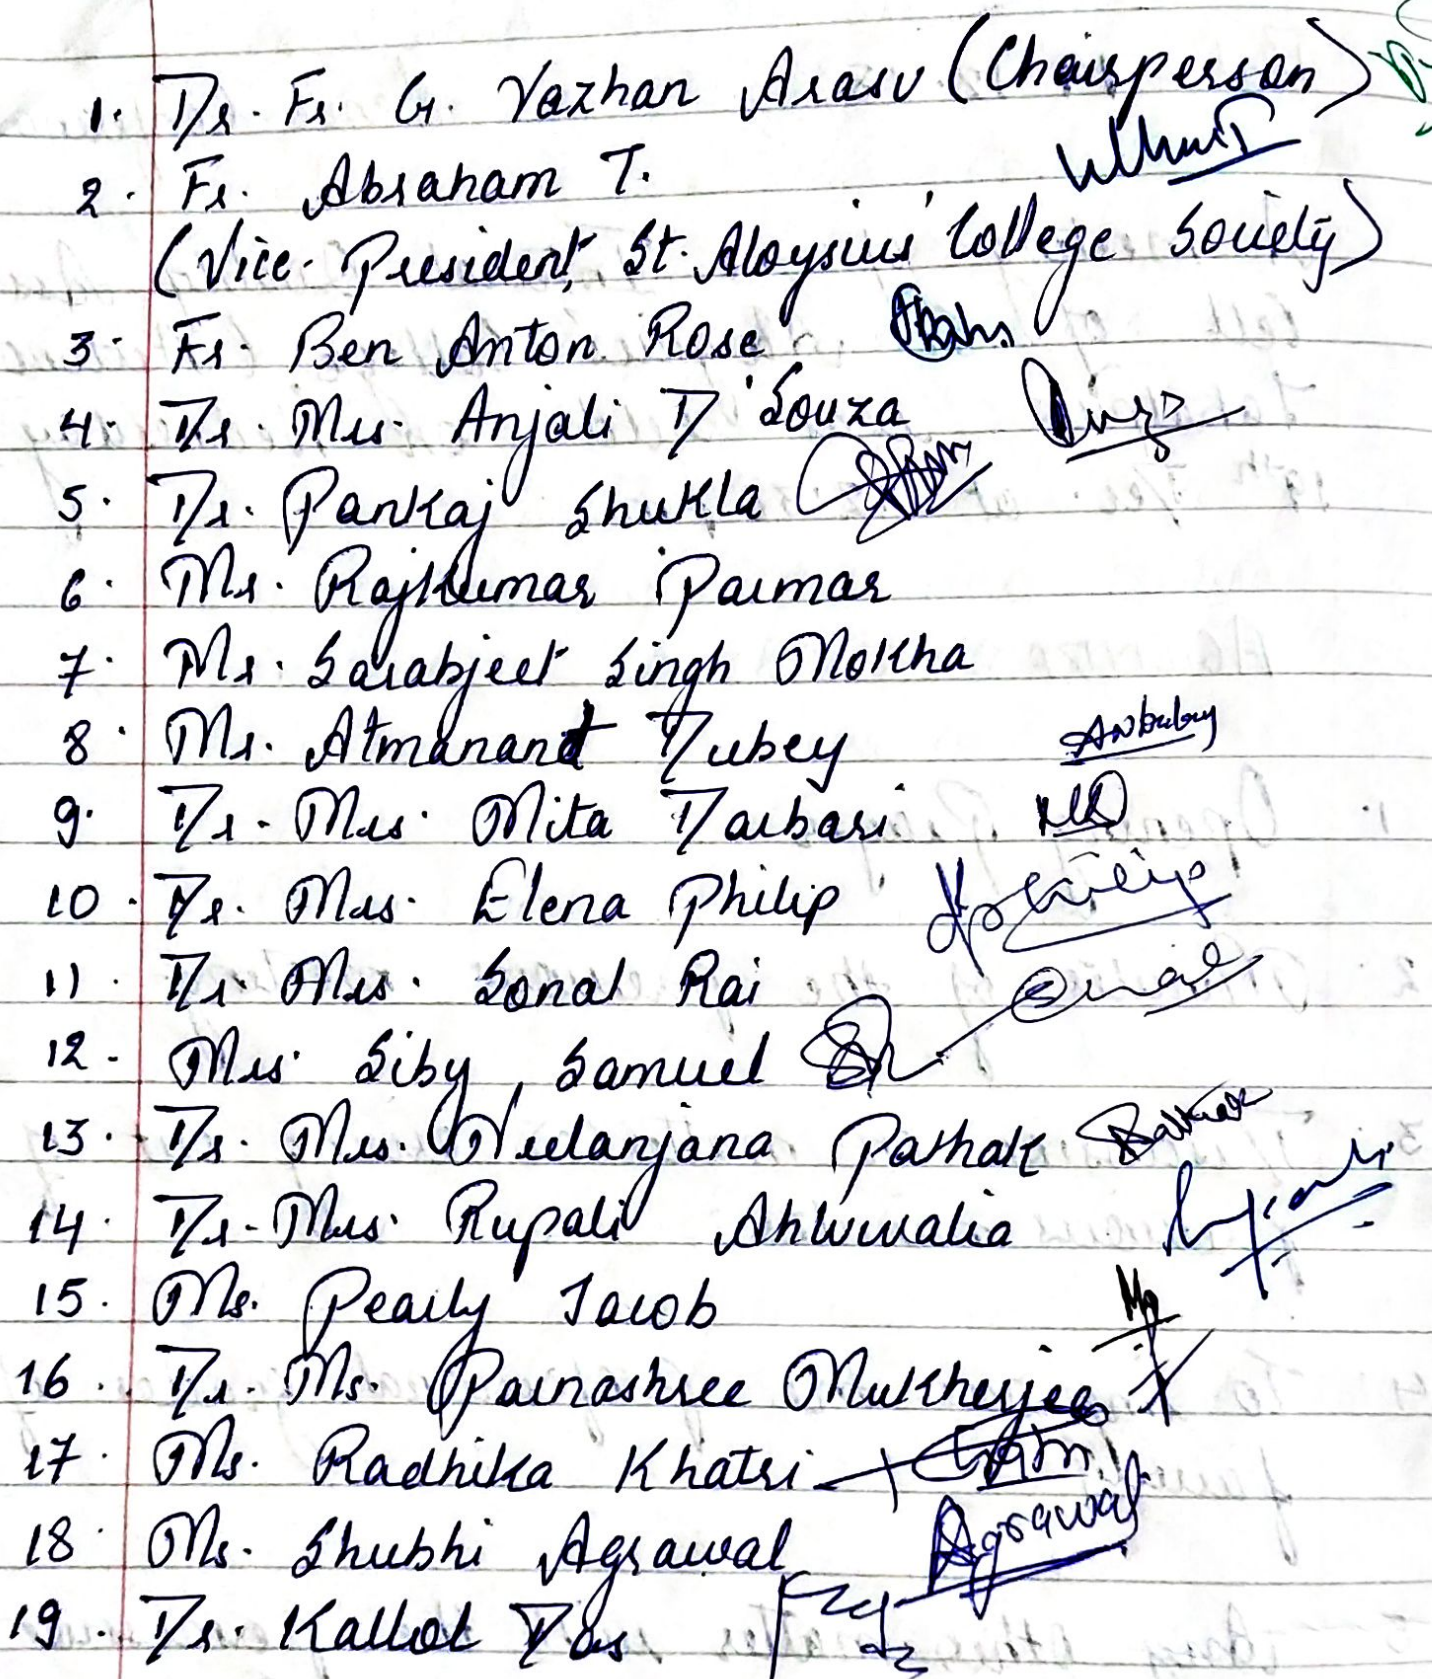 1. Dr. Fr. G. Vazhan Arasu (Chairperson)
2. Fr. Abraham T.
(Vice-President, St. Aloysius' College Society)
3. Fr. Ben Anton Rose
4. Dr. Mrs. Anjali D'Souza
5. Dr. Pankaj Shukla
6. Mr. Rajkumar Parmar
7. Mr. Sarabjeet Singh Mokha
8. Mr. Atmanand Dubey
9. Dr. Mrs. Mita Darbari
10. Dr. Mrs. Elena Philip Philip
11. Dr. Mrs. Sonal Rai
12. Mrs. Siby Samuel
13. Dr. Mrs. Neelanjana Pathak
14. Dr. Mrs. Rupali Ahluwalia
15. Ms. Pearly Jacob
16. Dr. Ms. Parnashree Mukherjee
17. Ms. Radhika Khatri
18. Ms. Shubhi Agrawal Agrawal
19. Dr. Kallol Das